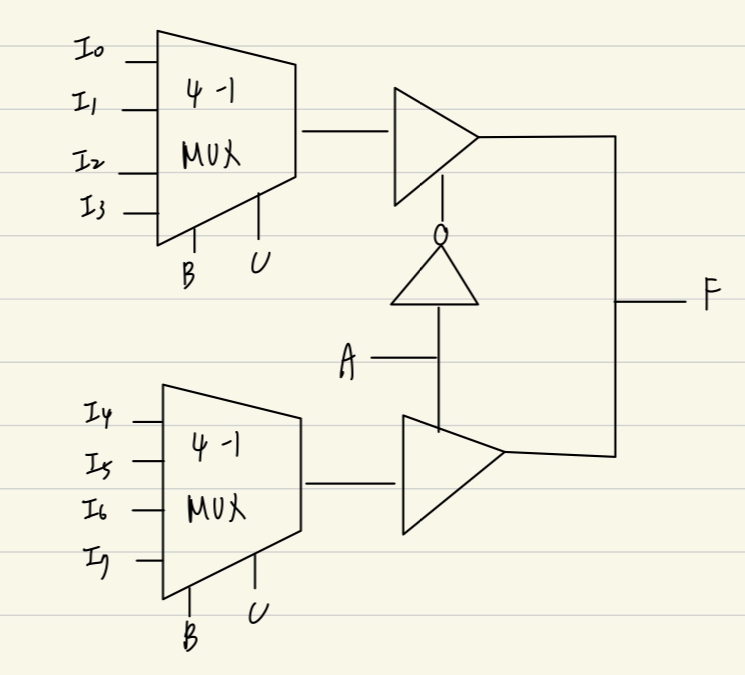 I0
I1
I2
I3
4-1
MUX
B
C
A
F
I4
I5
I6
I7
4-1
MUX
B
C